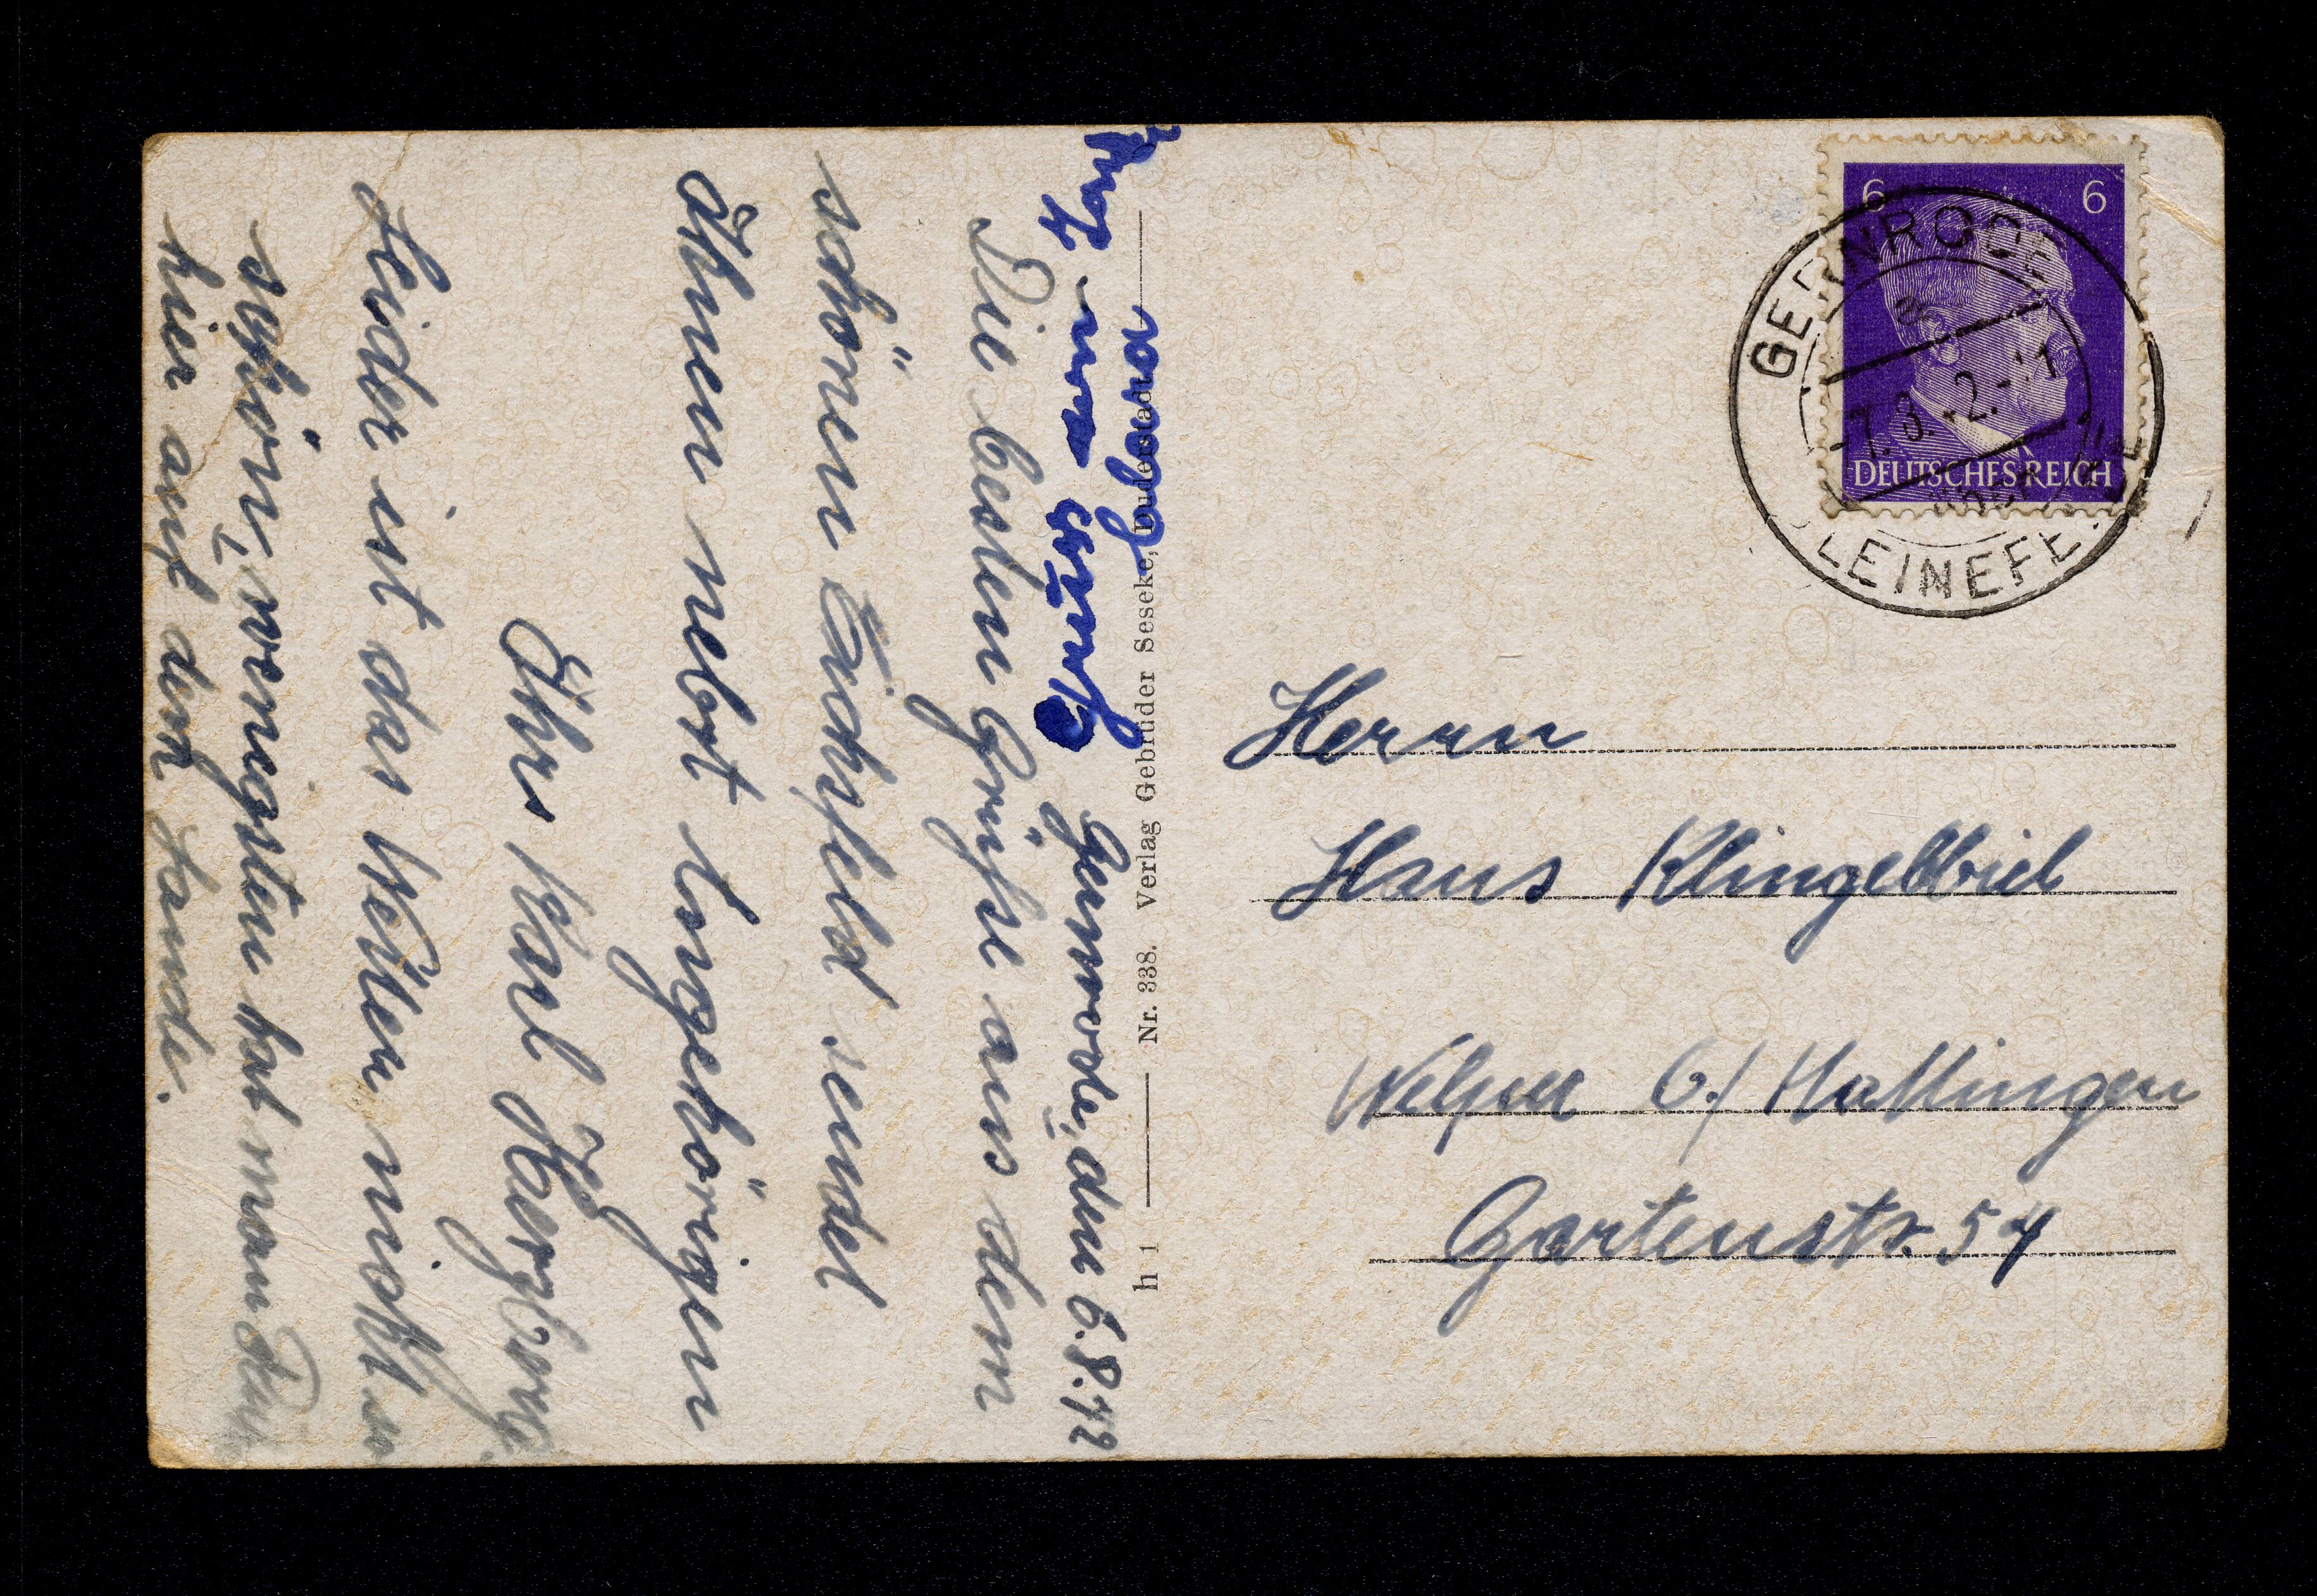 Gernrode, den 6.8.42
Die besten Grüße aus dem
schönen Eichsfeld sendet
Ihnen nebst Angehörigen
Ihr Karl Herzberg
Leider ist das Wetter nicht so
schön, wenigsten hat man Ruhe
hier auf dem Lande.
Gruß von
Nr. 338. Verlag Gebrüder Seseke, Duderstadt
h 1
6 6
DEUTSCHES REICH
GERNRODE
über LEINEFELDE
Herrn
Hans Klingebiel
Welper b/ Hattingen
Gartenstr. 54